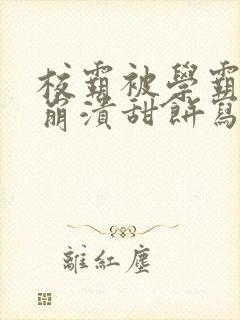 校霸被學霸
崩潰甜餅寫
離紅塵